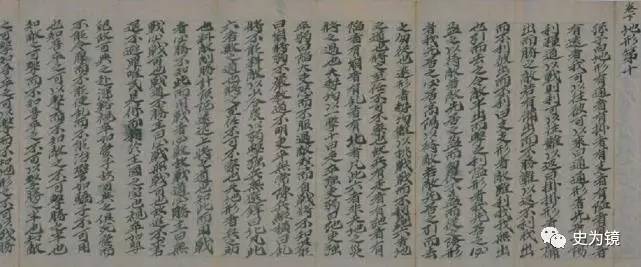 卷下 地形第十
孫子曰地形有通者有掛者有支者有隘者有險者
有遠者我可以往彼可以來曰通通形者先居高陽
利糧道以戰則利可以往難以返曰掛掛形者敵無備
出而勝之敵若有備出而不勝難以返不利我出
而不利彼出而不利曰支支形者敵雖利我我無出
也引而去之令敵半出而擊之利隘形者我先居之必
盈之以待敵若敵先居之盈而勿從不盈而從之險形
者我先居之必居高陽以待敵若敵先居之引而去
之勿從也遠形者勢均難以挑戰戰而不利凡此六者地
之道也將之至任不可不察也故兵有走者有弛者有陷
者有崩者有亂者有北者凡此六者非天地之災
將之過也夫勢均以一擊十曰走卒強吏弱曰弛吏強
卒弱曰陷大吏怒而不服遇敵懟而自戰將不知其能
曰崩將弱不嚴教道不明吏卒無常陳兵縱橫曰亂
將不能料敵以少合衆以弱擊強兵無選鋒曰北凡此
六者敗之道也將之至任不可不察也夫地形者兵之助
也料敵制勝計險阨遠近上將之道也知此而用戰
者必勝不知此而用戰者必敗故戰道必勝主曰無
戰必戰可也戰道不勝主曰必戰無戰可也故進不求名
退不避罪唯民是保而利於主國之寶也視卒如嬰
兒故可與之赴深谿視卒如愛子故可與之俱死厚而
不能使愛而不能令亂而不能治譬如驕子不可用
也知吾卒之可以擊而不知敵之不可擊勝之半也
知敵之可擊而不知吾卒之不可以擊勝之半也知敵
之可擊知吾卒之可以擊而不知地形之不可以戰
史为镜